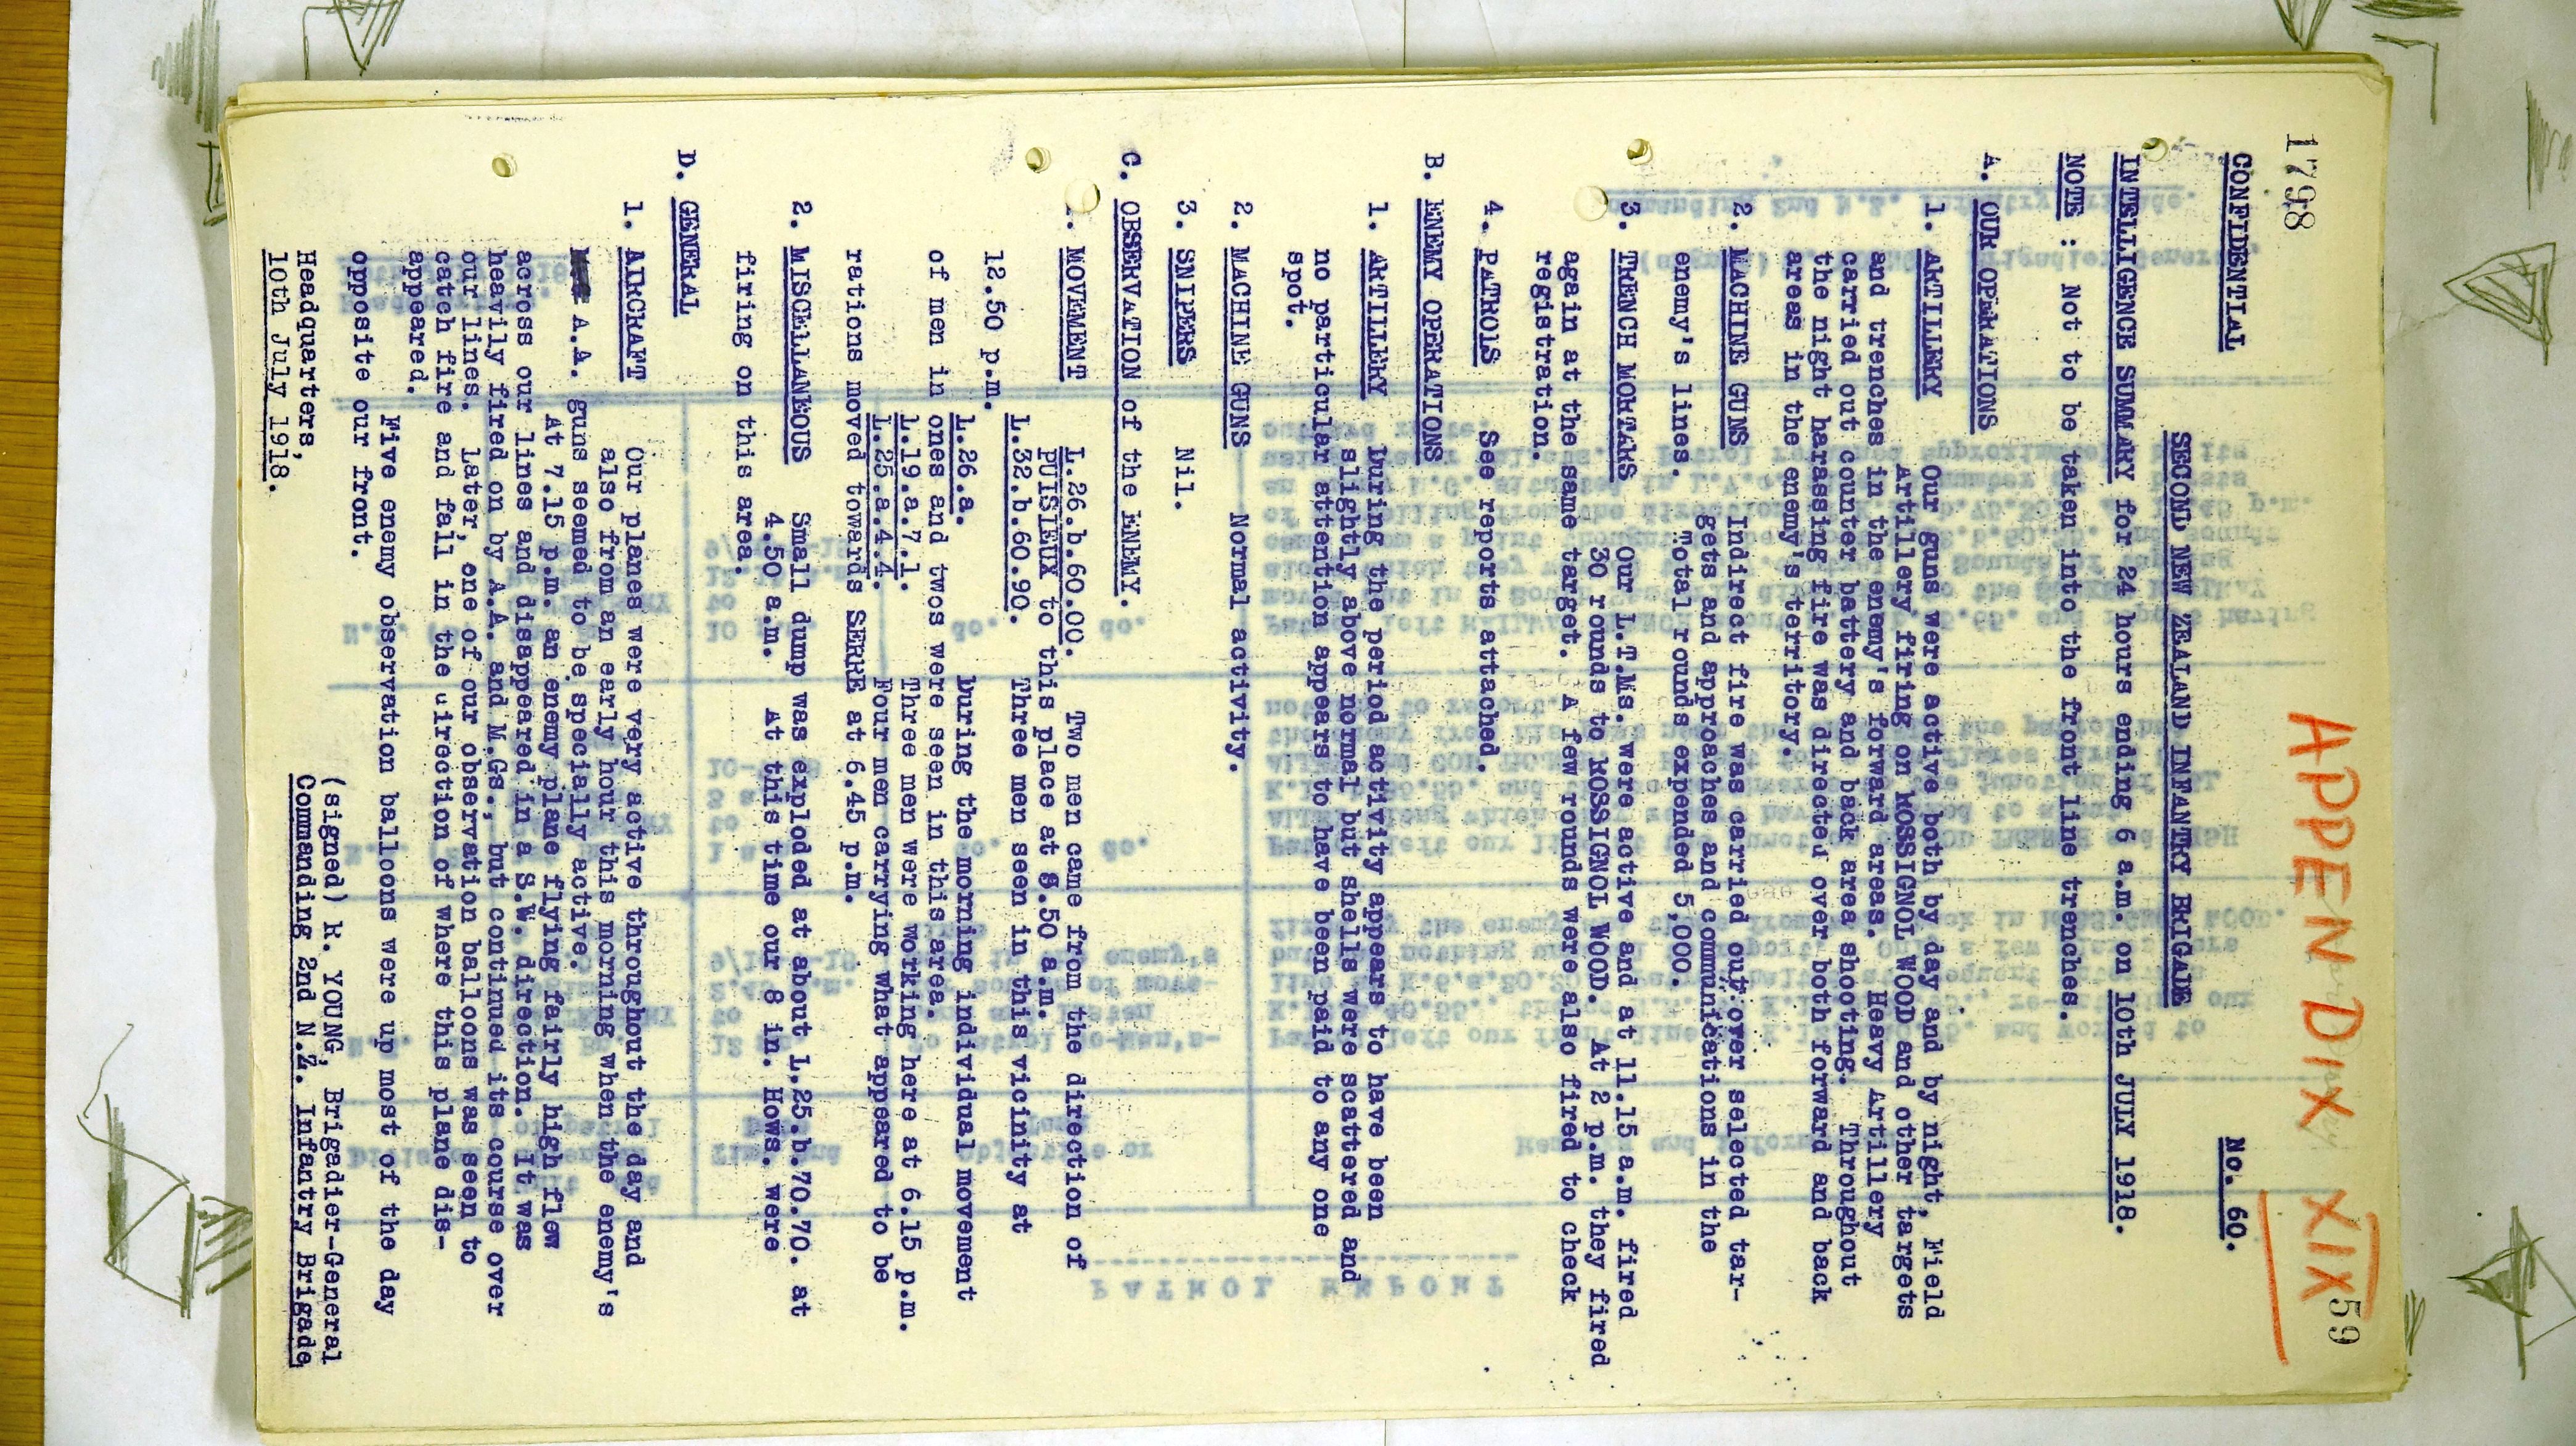 1798
APPENDIX XIX
59
CONFIDENTIAL
No. 60.
SECOND NEW ZEALAND INFANTRY BRIGADE
INTELLIGENCE SUMMARY for 24 hours ending 6 a.m. on 10th JULY 1918.
NOTE : Not to be taken into the front line trenches.
A. OUR OPERATIONS
1. ARTILLERY Our guns were active both by day and by night, Field
Artillery firing on ROSSIGNOL WOOD and other targets
and trenches in the enemy's forward areas. Heavy Artillery
carried out counter battery and back area shooting. Throughout
the night harassing fire was directed over both forward and back
areas in the enemy's territory.
2. MACHINE GUNS Indirect fire was carried out over selected tar-
gets and approaches and communications in the
enemy's lines. Total rounds expended 5,000.
3. TRENCH MORTARS Our L.T.Ms. were active and at 11.15 a.m. fired
30 rounds to ROSSIGNOL WOOD. At 2 p.m. they fired
again at the same target. A few rounds were also fired to check
registration.
4. PATROLS See reports attached.
B. ENEMY OPERATIONS
1. ARTILLERY During the period activity appears to have been
slightly above normal but shells were scattered and
no particular attention appears to have been paid to any one
spot.
2. MACHINE GUNS Normal activity.
3. SNIPERS Nil.
C. OBSERVATION of the ENEMY.
1. MOVEMENT L.26.b.60.00. Two men came from the direction of
PUISIEUX to this place at 8.50 a.m.
L.32.b.60.90. Three men seen in this vicinity at
12.50 p.m.
L.26.a. During the morning individual movement
of men in ones and twos were seen in this area.
L.19.a.7.1. Three men were working here at 6.15 p.m.
L.25.a.4.4. Four men carrying what appeared to be
rations moved towards SERRE at 6.45 p.m.
2. MISCELLANEOUS Small dump was exploded at about L.25.b.70.70. at
4.50 a.m. At this time our 8 in. Hows. were
firing on this area.
D. GENERAL
1. AIRCRAFT Our planes were very active throughout the day and
also from an early hour this morning when the enemy's
A.A. guns seemed to be specially active.
At 7.15 p.m. an enemy plane flying fairly high flew
across our lines and disappeared in a S.W. direction. It was
heavily fired on by A.A. and M.Gs., but continued its course over
our lines. Later, one of our observation balloons was seen to
catch fire and fall in the direction of where this plane dis-
appeared.
Five enemy observation balloons were up most of the day
opposite our front.
(signed) R. YOUNG, Brigadier-General
Headquarters, Commanding 2nd N.Z. Infantry Brigade
10th July 1918.